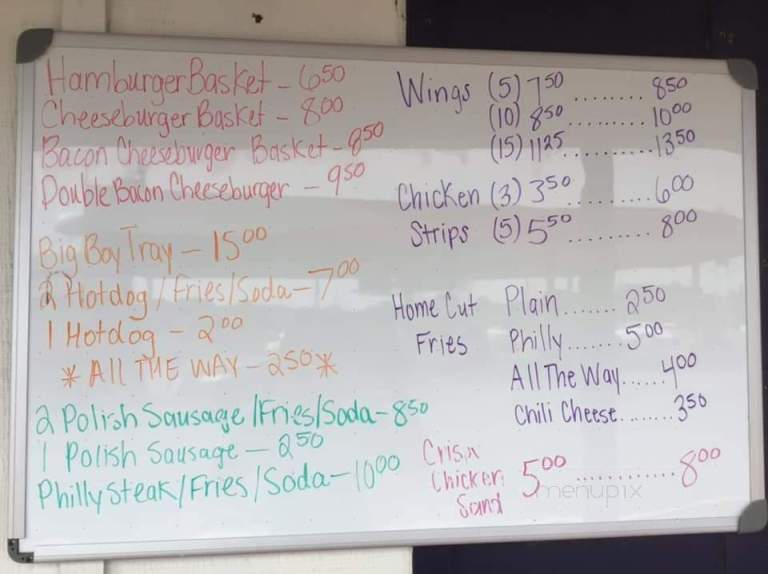 Hamburger Basket - 6.50
Cheeseburger Basket - 8.00
Bacon Cheeseburger Basket - 8.50
Double Bacon Cheeseburger - 9.50
Big Boy Tray - 15.00
2 Hotdog/Fries/Soda - 7.00
1 Hotdog - 2.00
* All THE WAY - 2.50 *
2 Polish Sausage/Fries/Soda - 8.50
1 Polish Sausage - 2.50
Philly Steak/Fries/Soda - 10.00
Wings (5) 7.50 ........ 8.50
(10) 8.50 ......... 10.00
(15) 11.25 .......... 13.50
Chicken (3) 3.50 ......... 6.00
Strips (5) 5.50 ......... 8.00
Home Cut Plain ....... 2.50
Fries Philly ....... 5.00
All The Way ...... 4.00
Chili Cheese ........ 3.50
Crispy
Chicken 5.00 ............ 8.00
Sand
menupix